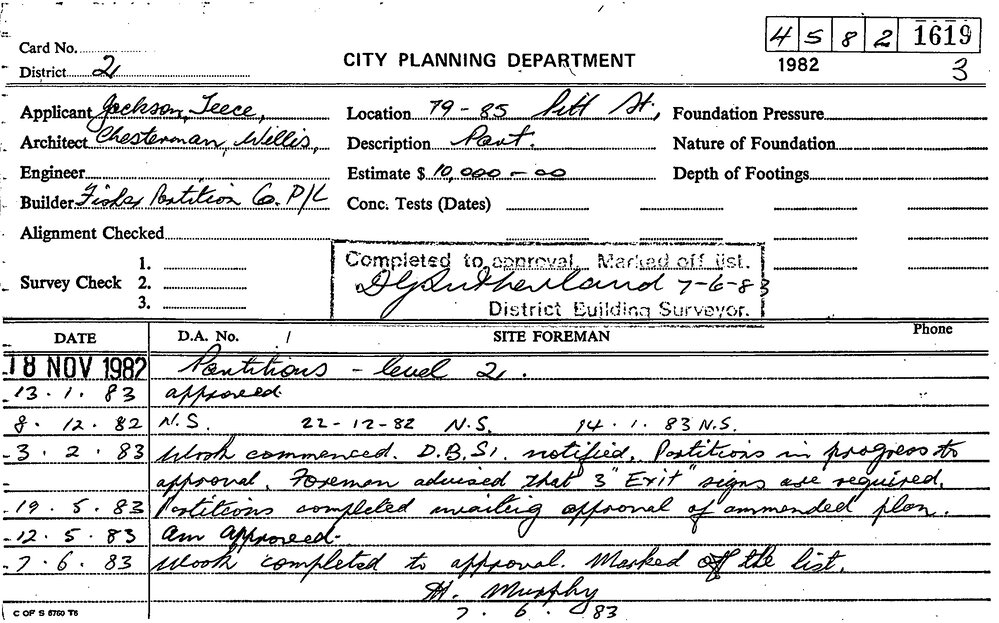 4 5 8 2 1619
Card No.
CITY PLANNING DEPARTMENT
1982 3
District 2
Applicant Jackson, Teece, Location 79-85 Pitt St, Foundation Pressure
Architect Chesterman, Willis, Description Part. Nature of Foundation
Engineer Estimate $ 10,000-00 Depth of Footings
Builder Partition Co. P/L Conc. Tests (Dates)
Alignment Checked
Completed to approval. Marked off list.
Survey Check 1. 2. 3.
DGSutherland 7-6-83
District Building Surveyor.
DATE D.A. No. / SITE FOREMAN Phone
18 NOV 1982 Partitions - level 2.
13.1.83 approved
8.12.82 N.S. 22-12-82 N.S. 14.1.83 N.S.
3.2.83 Work commenced. D.B.S. notified. Partitions in progress to
approval. Foreman advised that 3 "Exit" signs are required.
19.5.83 Partitions completed awaiting approval of ammended plan.
12.5.83 Am Approved.
7.6.83 Work completed to approval. Marked off the list.
H. Murphy
7.6.83
C OF S 6760 T6